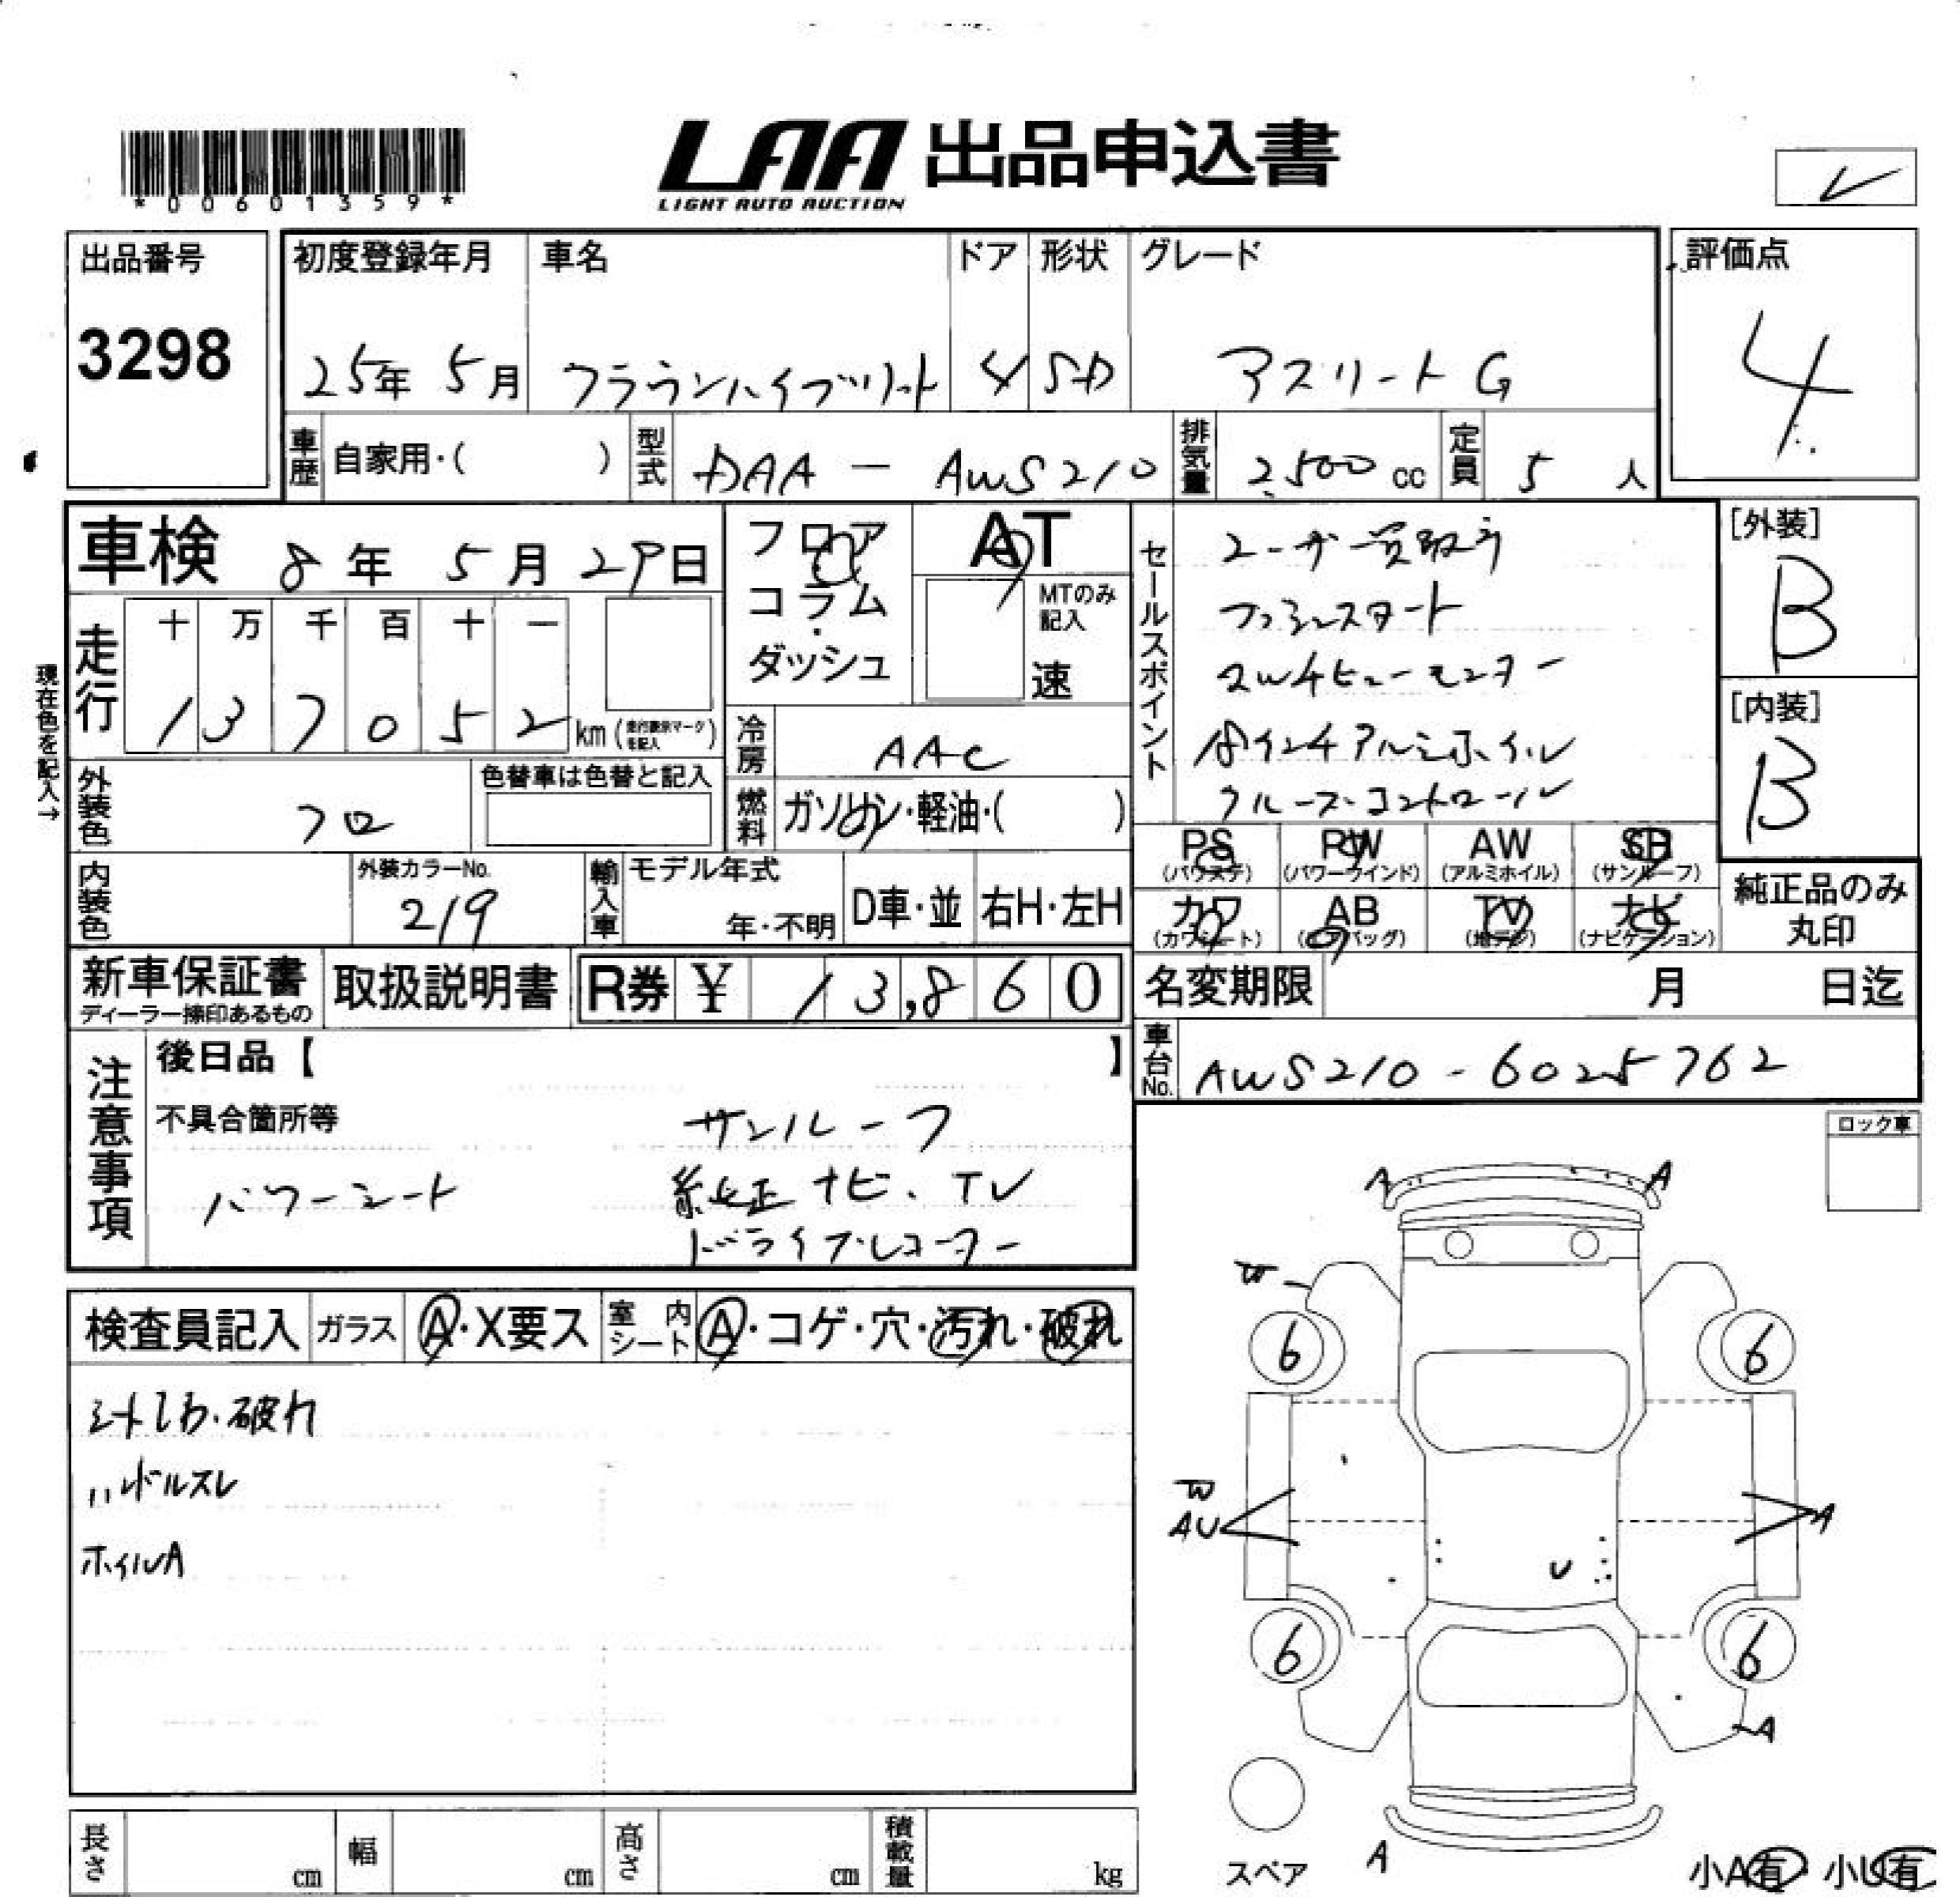 *00601359*
LAA 出品申込書
LIGHT AUTO AUCTION
レ
出品番号
3298
初度登録年月 車名 ドア 形状 グレード
25年 5月 クラウンハイブリット 4 SD アスリート G
評価点
4
車歴 自家用・( ) 型式 DAA - AWS210 排気量 2,500 cc 定員 5 人
車検 8年 5月 29日
フロア
コラム
・
ダッシュ
AT
MTのみ
記入
速
セールスポイント
ユーザー買取り
プッシュスタート
マルチビューモニター
18インチアルミホイル
クルーズコントロール
[外装]
B
[内装]
B
現在色を記入→
走行
十 万 千 百 十 一
1 3 7 0 5 2 km (走行表示マークを記入)
冷房 AAC
外装色 クロ
色替車は色替と記入
燃料 ガソリン・軽油・( )
PS RW AW SR
(パワステ) (パワーウインド) (アルミホイル) (サンルーフ)
カワ AB TV ナビ
(カワシート) (エアバッグ) (地デジ) (ナビゲーション)
純正品のみ
丸印
内装色
外装カラーNo.
219
輸入車 モデル年式
年・不明 D車・並 右H・左H
新車保証書
ディーラー捺印あるもの
取扱説明書
R券 ¥ 13,860
名変期限 月 日迄
車台No. AWS210-6025762
注意事項
後日品【 】
不具合箇所等
サンルーフ
パワーシート 純正ナビ、TV
ドライブレコーダー
ロック車
検査員記入 ガラス A・X要ス 室内シート A・コゲ・穴・汚れ・破れ
シートしわ・破れ
ハンドルスレ
ホイルA
A A
W
6 6
W
AU A
U
6 6
A
スペア A
小A有・小U有
長さ cm 幅 cm 高さ cm 積載量 kg